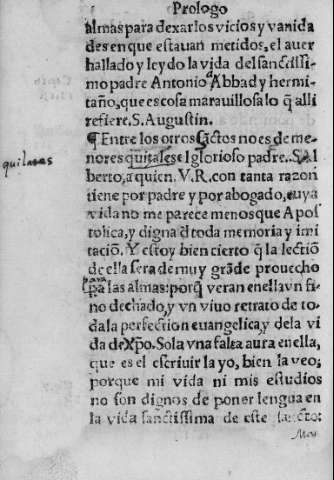 Prologo
almas para dexar los vicios y vanida
des en que estauan metidos, el auer
hallado y leydo la vida del sanctissi
mo padre Antonio Abbad y hermi
taño, que es cosa marauillosa lo q̃ alli
refiere. S. Augustin.
¶ Entre los otros sãctos no es de me
nores quitales el glorioso padre. S. Al
quilates
berto, a quien. V. R. con tanta razon
tiene por padre y por abogado, cuya
vida no me parece menos que Apos
tolica, y digna d̃ toda memoria y imi
taciõ. Y estoy bien cierto q̃ la lectiõ
de ella sera de muy grãde prouecho
para
p̃a las almas: porq̃ veran en ella vn fi
no dechado, y vn viuo retrato de to
da la perfection euangelica, y de la vi
da de Xp̃o. Sola vna falta aura en ella,
que es el escriuir la yo, bien la veo;
porque mi vida ni mis estudios
no son dignos de poner lengua en
la vida sanctissima de este sancto: